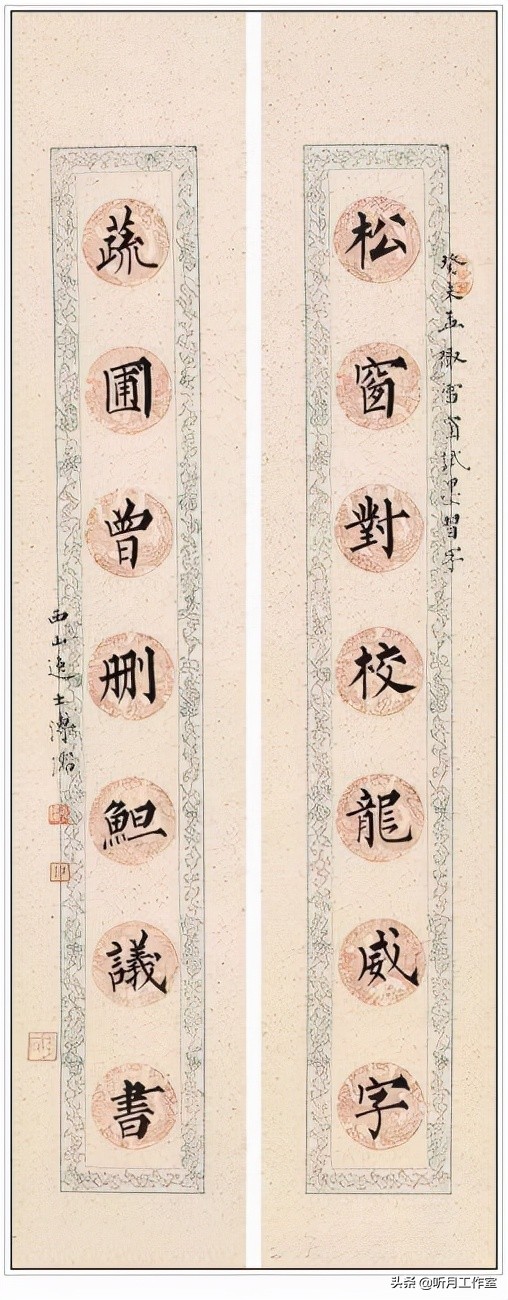 松窗對校龍威字
癸未孟陬雪窗試墨習字
蔬圃曾刪䱇議書
西山逸士溥儒
头条 @听月工作室